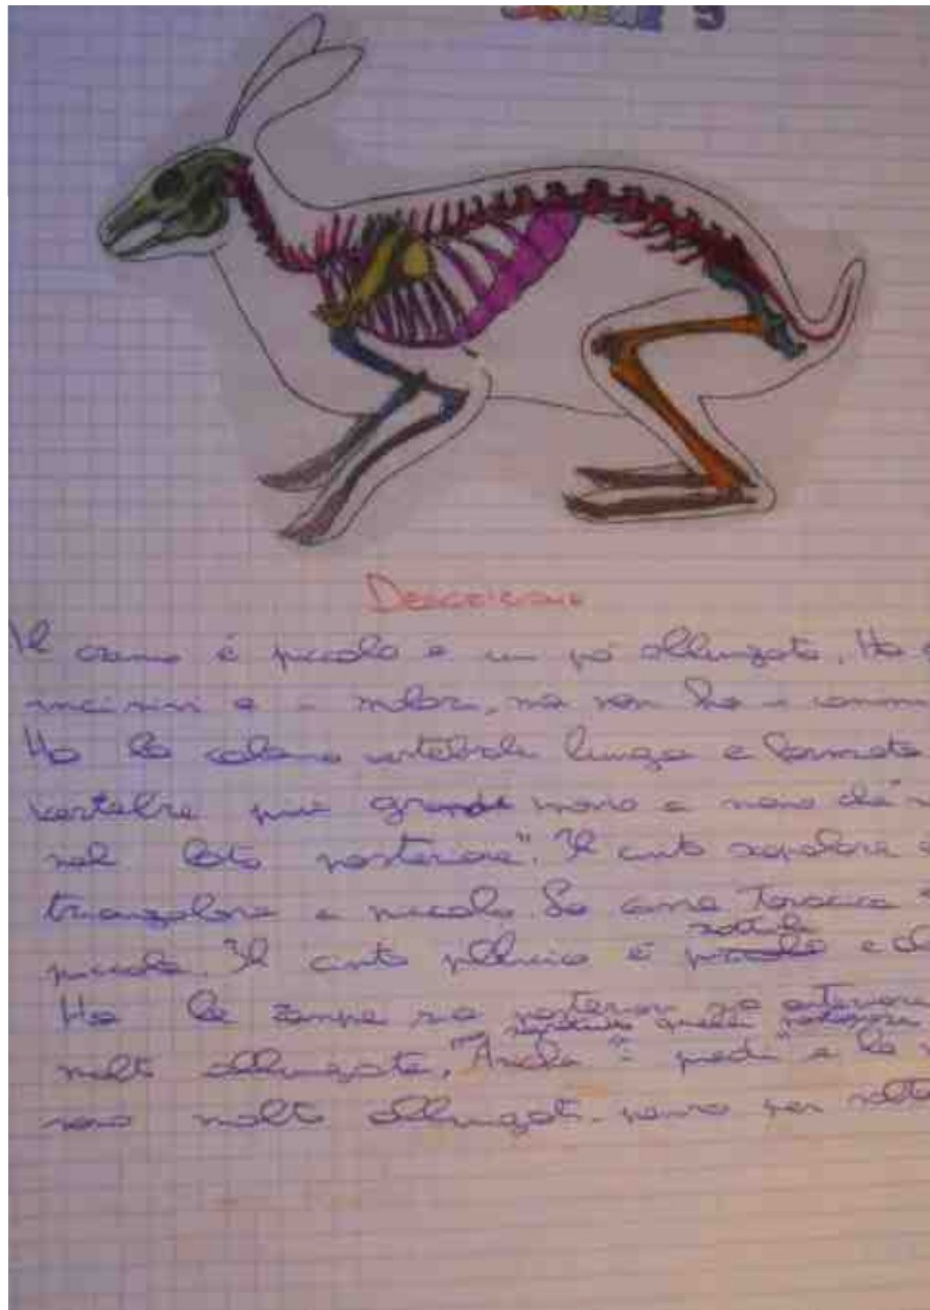 Descrizione
Il cranio è piccolo e un pò allungato. Ha
incisivi e i molari, ma non ha i canini
Ha la colonna vertebrale lunga e formata
vertebre più grandi mano a mano che
nel lato posteriore". Il cinto scapolare è
triangolare e piccolo. La
piccola. Il cinto pelvico è sottile e
Ha le zampe sia posteriori sia anteriori
molto allungate, Anche "i piedi" e la
sono molto allungati. per